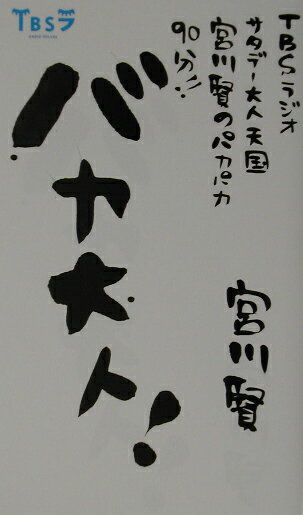 TBSラジオ
サタデー大人天国
宮川賢のパカパカ
90分!!
宮川賢
バカ大人!
TBSラ